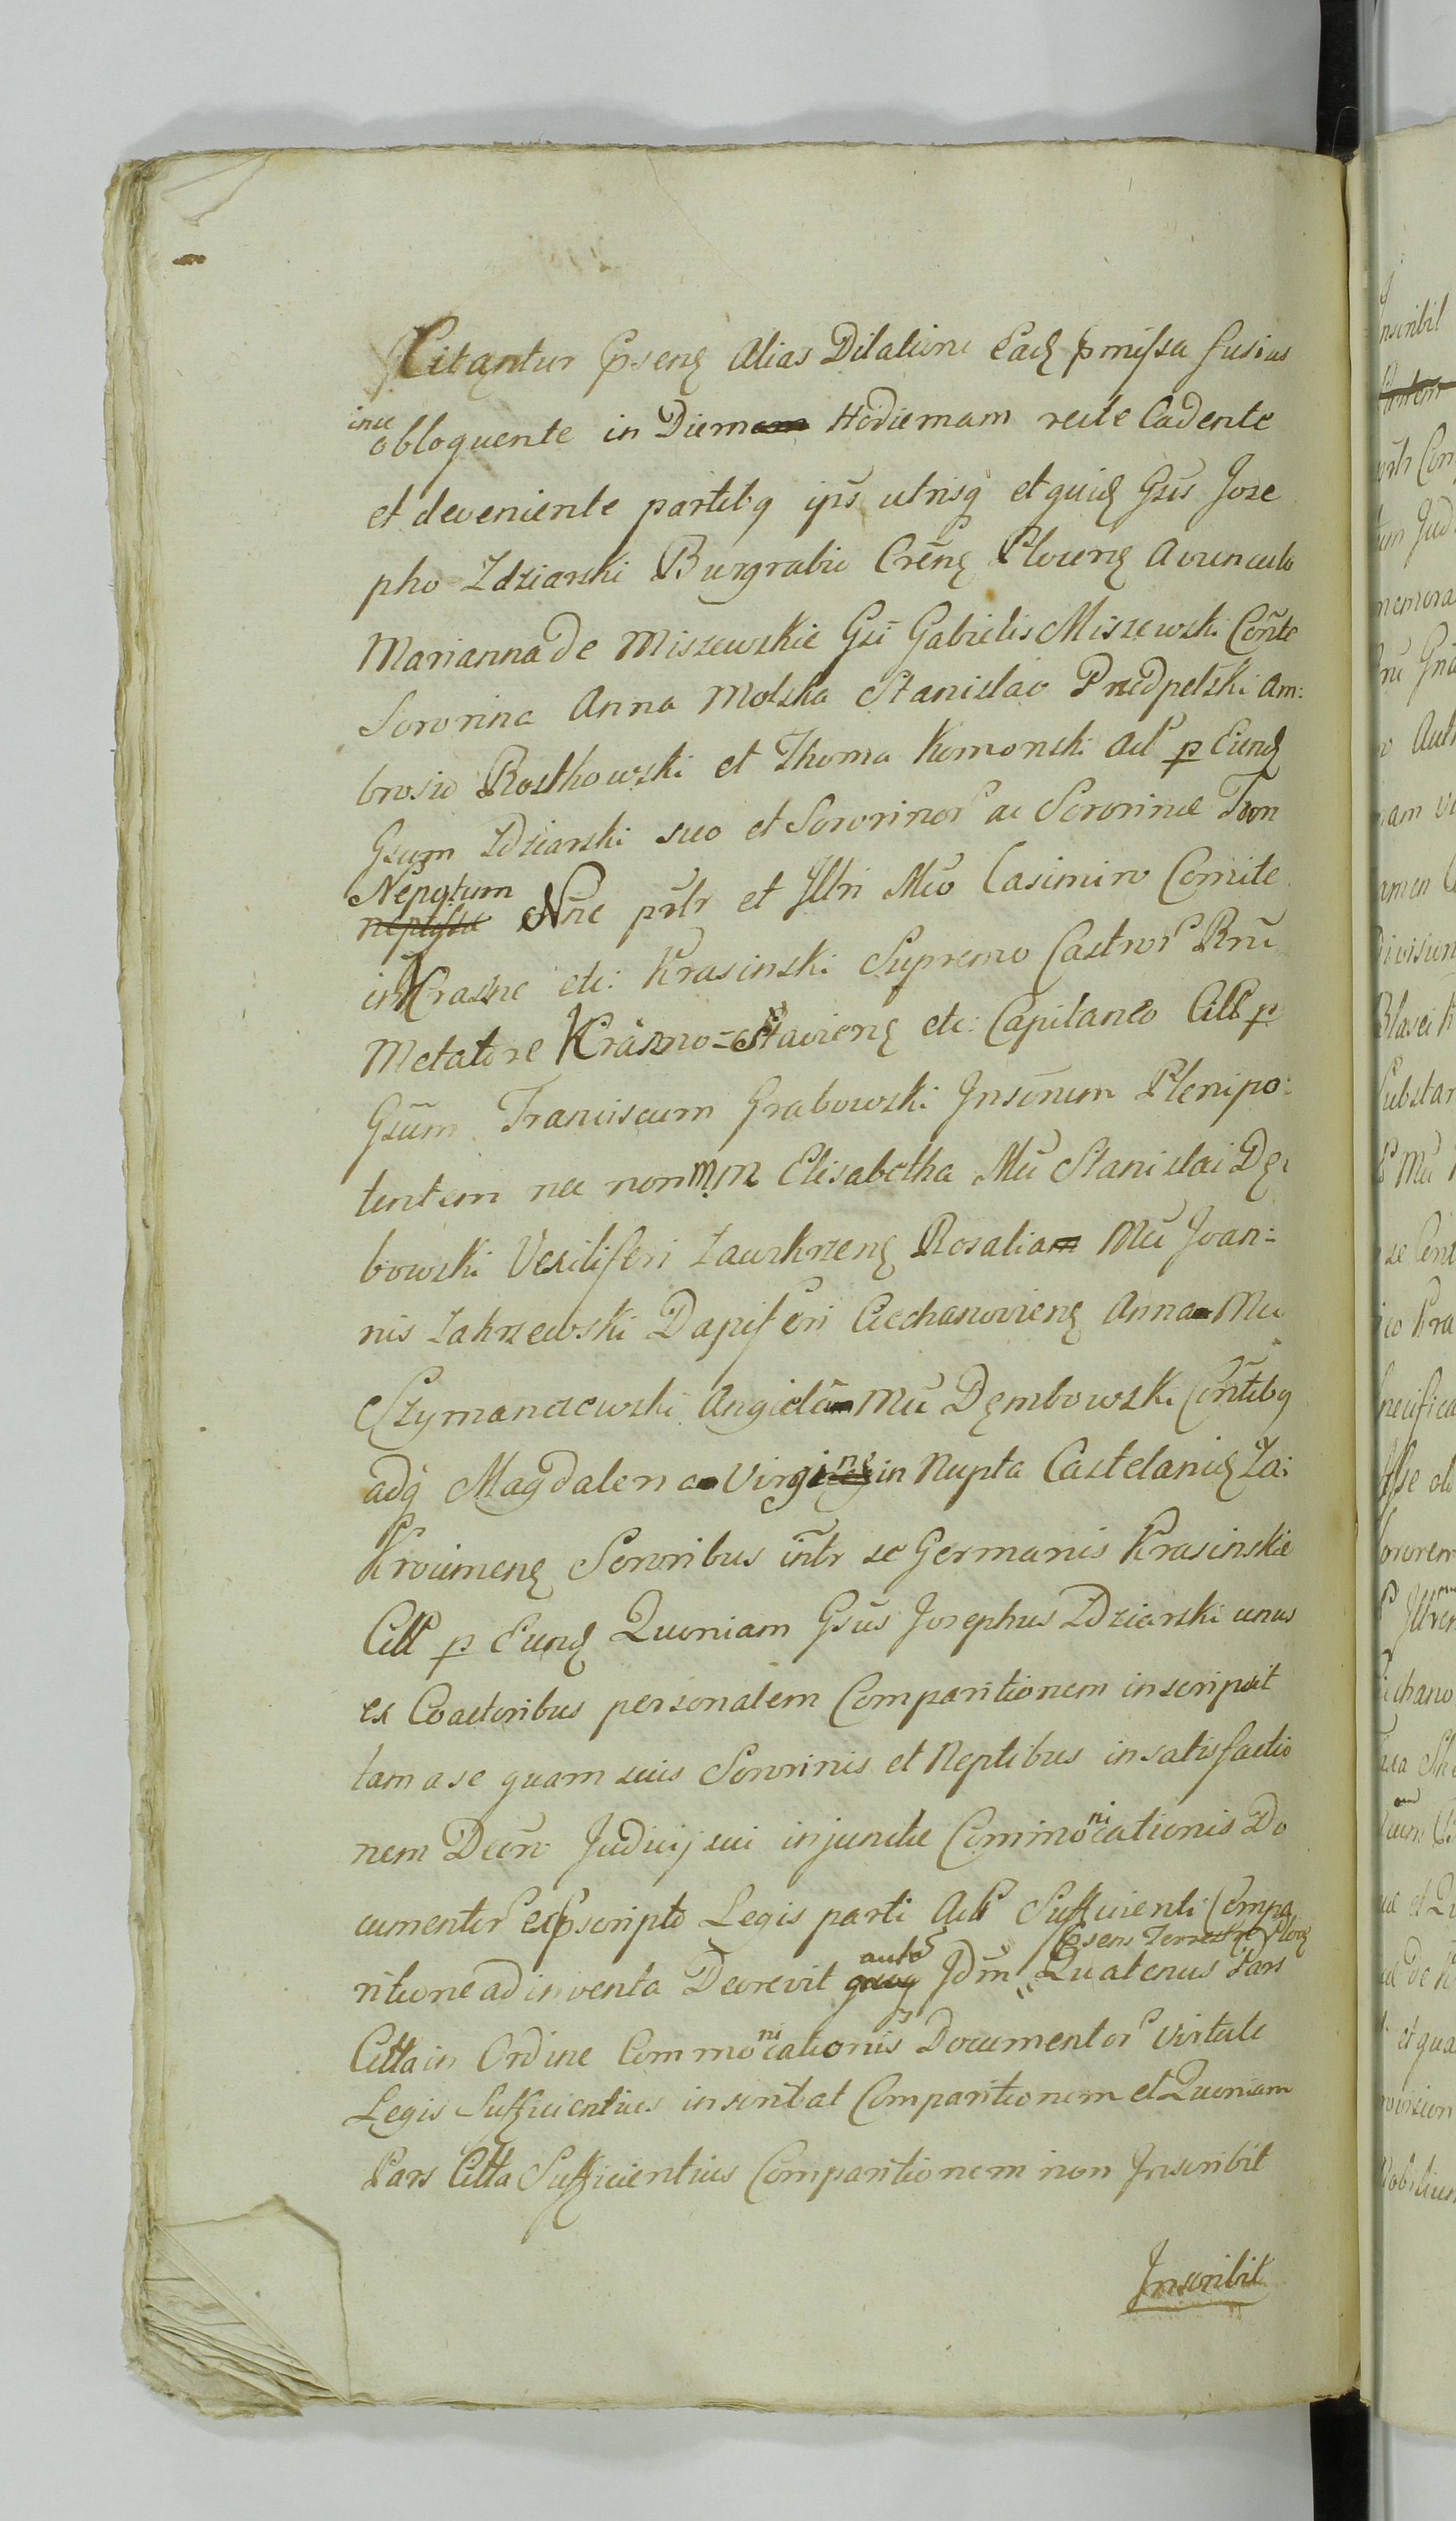 Citantur Pñseng Alias Dilatione Eadȝ pmissa fusius
inse obloquente in Diem Hodiernam recte Cadente
et deveniente partibq ipš utrisq et quidȝ Gsš Jose
pho Zdziarski Burgrabio Crenȝ Plocenȝ Avunculo
Marianna de Miszewskie Gsi Gabrielis Miszewski Conte
Sororina Anna Molska Stanislao Przedpelski Am:
brosio Rostkowski et Thoma Komonski Act p Eundȝ
Gsum Zdziarski suo et Sororinor ac Sororinae Tum
Nepotum Nñe pñtr et Illri Mco Casimiro Comite
in Krasne etc: Krasinski Supremo Castror Rñi
Metatore Krasno=Stavienȝ etc: Capitaneo Citt p
Gsum Franciscum Grabowski Insonum Plenipo:
tentem nec non MM Elisabetha Mci Stanislai Dę
bowski Vexiliferi Zawskrzenȝ Rosalia Mci Joan=
nis Zakrzewski Dapiferi Ciechanovienȝ Anna Mci
Szymanczewski Angiela Mci Dęmbowski Contibq
adq Magdalena Virgine in Nupta Castelanidȝ Za:
kroicimenȝ Sororibus intr se Germanis Krasinskie
Citt p Eundȝ Quoniam Gsus Josephus Zdziarski unus
ex Coactoribus personalem Comparitionem inscripsit
tam a se quam suis Sororinis et Neptibus in satisfactio
nem Decri Judicij sui injunctae Commonicationis Do
cumentor ex pscripto Legis parti Act Sufficienti Compa
ritione adinventa Decrevit auto Jdm Pñsens Terrestre Plocȝ Quatenus Pars
Citta in Ordine Commonicationis Documentor virtute
Legis Sufficientius inscribat Comparitionem et Quoniam
Pars Citta Sufficientius Comparitionem non Inscribit
Inscribit